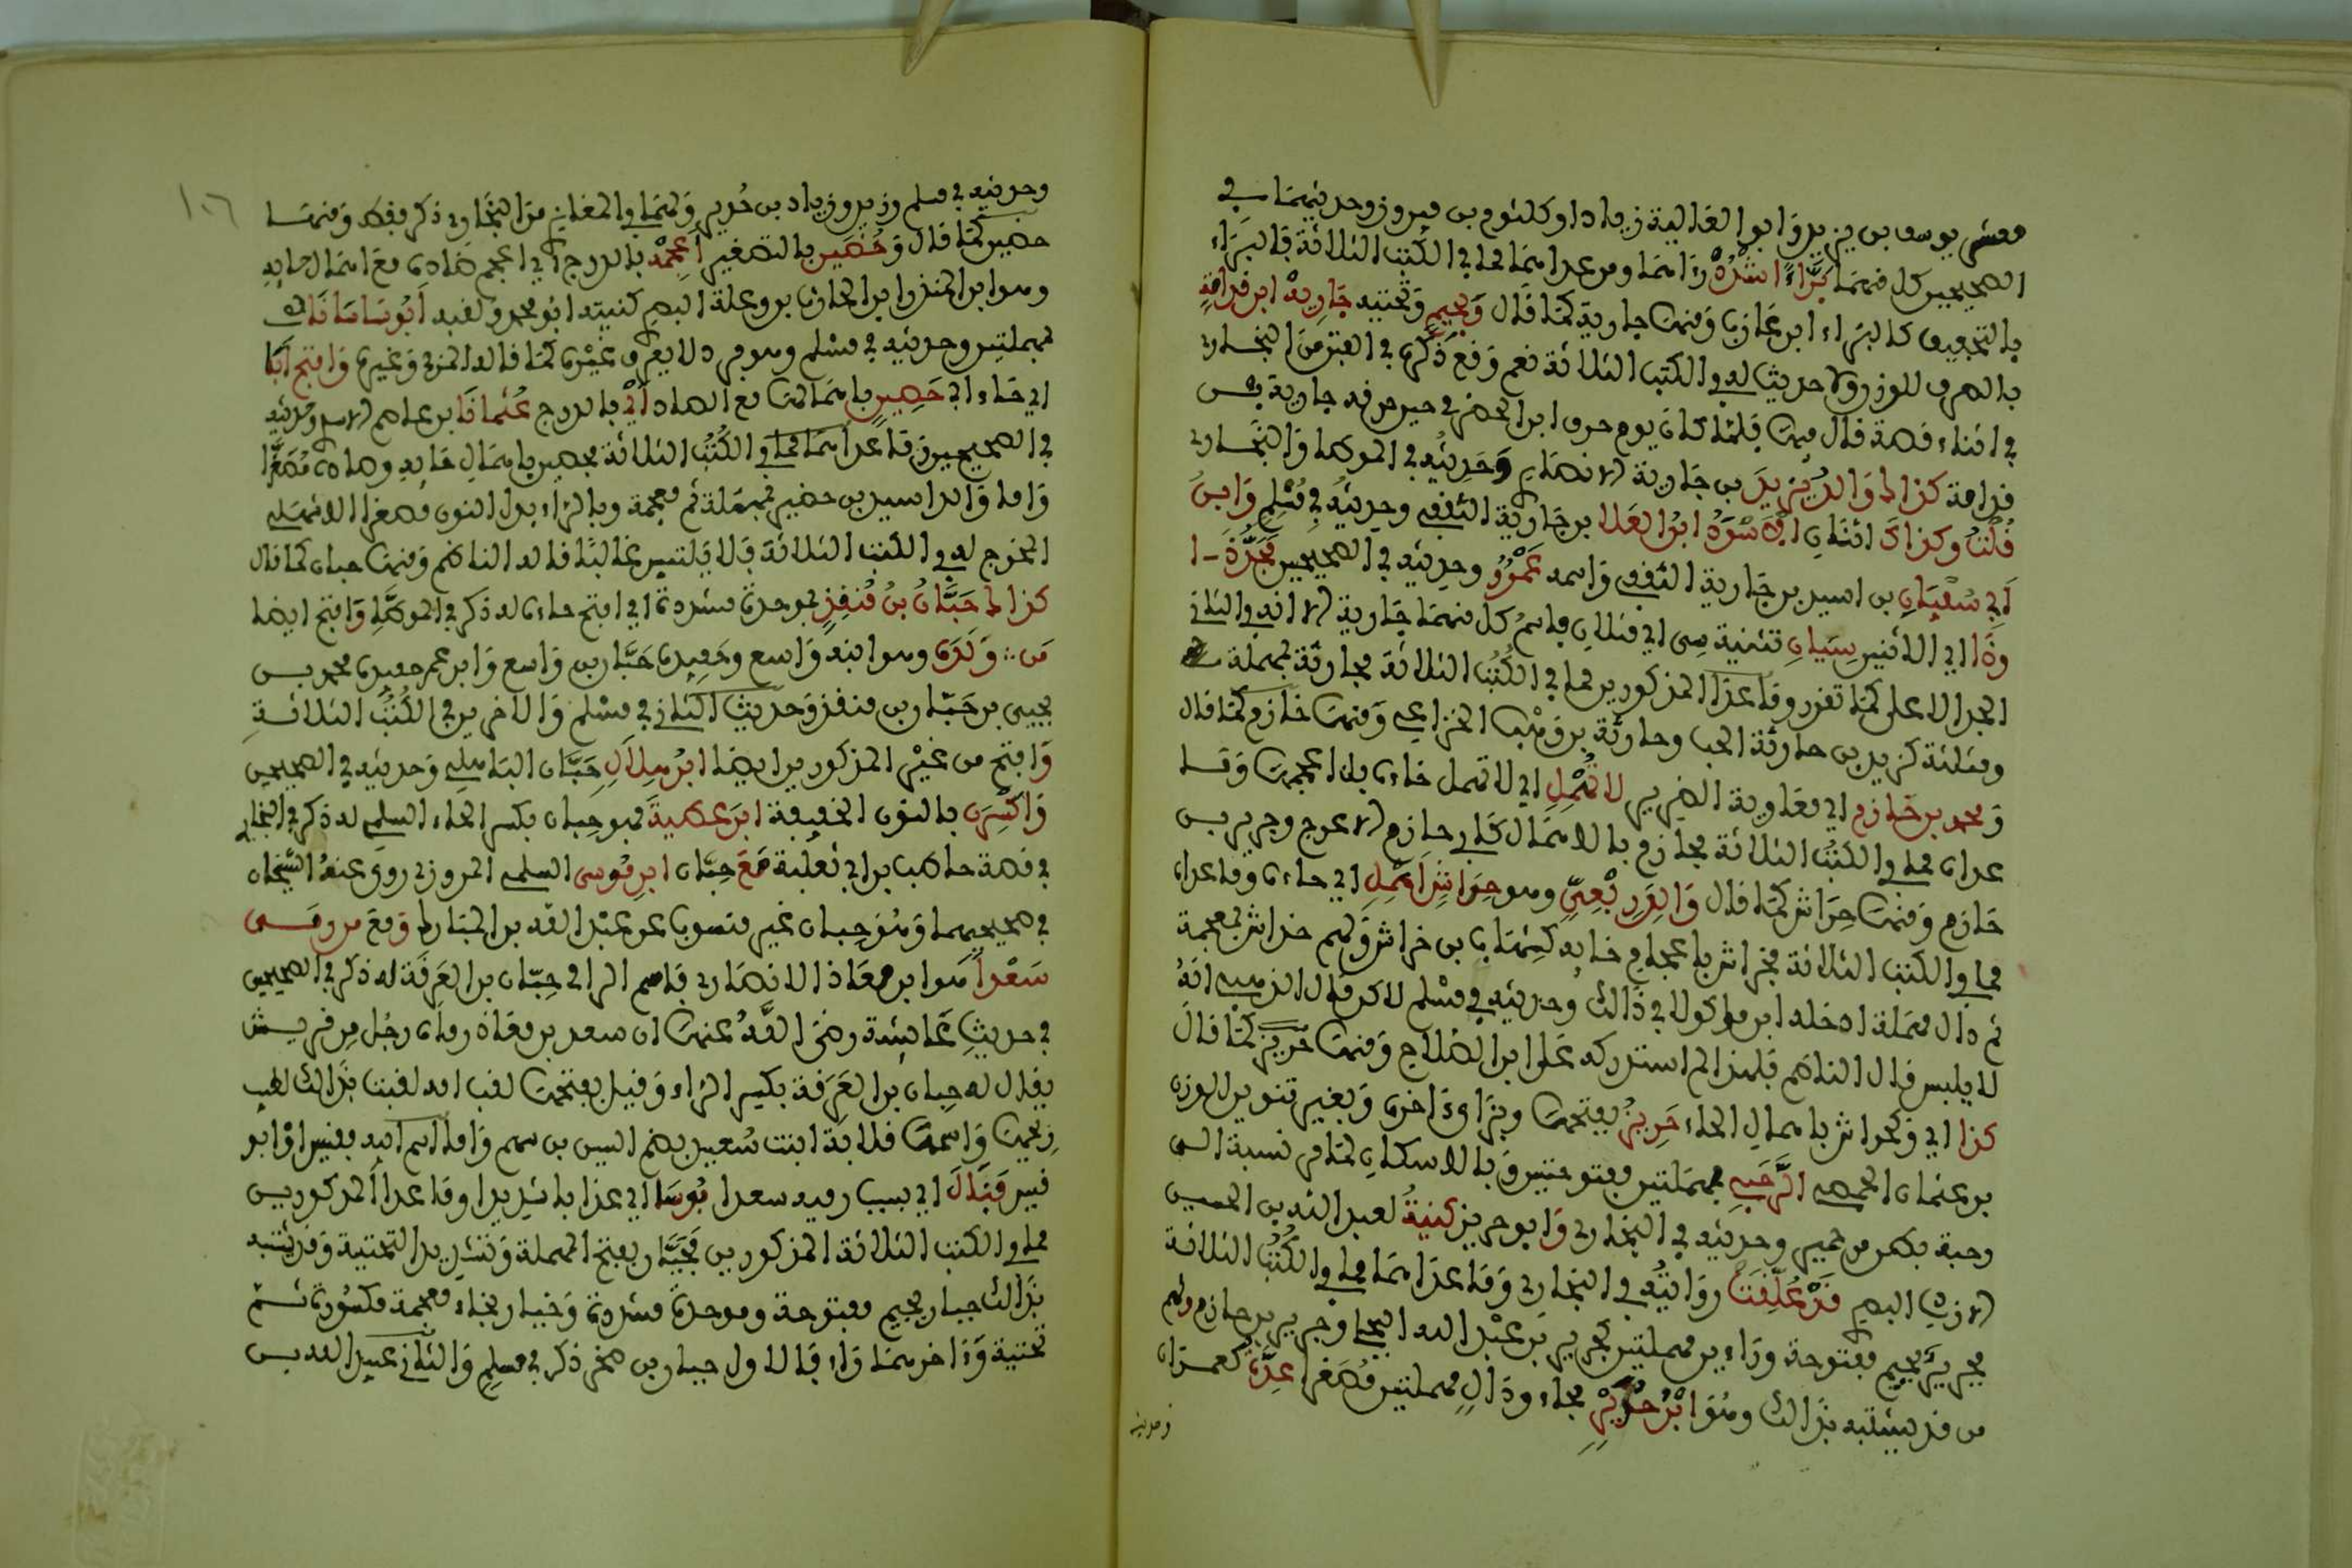 معشر يوسف بن يزيد وابو العالية زياد او كلثوم بن فيروز وحديثهما في
الصحيحين كل منهما بَرَّاءً اشْدُدْ راءهما ومن عداهما مما في الكتب الثلاثة فالبَرَاء
بالتخفيف كالبراء ابن عازب ومنها جارية كما قال وَبِجِيمٍ وتحتيه جَارِيَهْ ابن قدامةِ
بالصرف للوزن ولا حديث له في الكتب الثلاثة نعم وقع ذكره في الفتن من البخاري
في اثناء قصة قال فيها فلما كان يوم حرق ابن الحضرمي حين حرقه جارية بن
قدامة كذاك وَالِدُ يَزِيدَ بن جارية الانصاري وحديثه في الموطا والبخاري
قُلْتُ وكذاك اثنان الاسْوَدُ ابنُ العَلا بن جارية الثقفي وحديثه في مسلم وَابن
أَبي سُفْيَانِ بن اسيد بن جارية الثقفي واسمه عَمْرٌو وحديثه في الصحيحين فَجَدُّ
ذَا اي الاثنين سِيَانِ تثنية سي اي مثلان فاسم كل منهما جارية لا انه في الثاني
الجد الاعلى كما تقرر وما عدا المذكورين مما في الكتب الثلاثة فحارثة بمهملة
ومثلثة كزيد بن حارثة الحب وحارثة بن وهب الخزاعي ومنها خازم كما قال
وَمحمد بن خازِم ابي معاوية الضرير لا تُهْمِلِ اي لا تهمل خاءه بل اعجمها وما
عداه مما في الكتب الثلاثة فحازم بالاهمال كابي حازم الاعرج وجرير بن
حازم ومنها حِرَاش كما قال وَالِد رِبْعِيٍّ وهو حِرَاشِ اهْمِلِ اي حاءه وما عداه
مما في الكتب الثلاثة فخراش باعجام خائه كشهاب بن خراش وثم خداش بمعجمة
ثم دال مهملة ادخله ابن ماكولا في ذلك وحديثه في مسلم لاكن قال الذهبي انه
لا يلبس قال الناظم فلهذا لم استدركه على ابن الصلاح ومنها حريز كما قال
كذا اي وكحراش باهمال الحاء حَرِيزٌ بفتحها وبزاي اخره وبغير تنوين للوزن
بن عثمان الحمصي الرَّحَبِي بمهملتين مفتوحتين وبالاسكان لما مر نسبة الى
رحبة بطن من حمير وحديثه في البخاري وَابو حريز كنيةٌ لعبد الله بن الحسين
الازدي البصري قَدْ عُلِّقَتْ روايته في البخاري وما عداهما مما في الكتب الثلاثة
فجرير بجيم مفتوحة وراءين مهملتين كجرير بن عبد الله البجلي وجرير بن حازم وثم
من قد يشتبه بذلك وهو ابْنُ حُدَيْرٍ بحاء ودال مهملتين مصغرا عِدَّه كعمران
وحديثه
وحديثه في مسلم وزيد وزياد بن حُدير ولهما في المغازي من البخاري ذكر فقط ومنها
حضين كما قال وَحُضَين بالتصغير أَعْجِمْهُ بالدرج اي اعجم ضاده مع اهمال حائه
وهو ابن المنذر ابن الحارث بن وعلة البصري كنيته ابو محمد ولقبه أَبُو سَاسَانَا
بمهملتين وحديثه في مسلم وهو فرد لا يعرف غيره كما قاله المزي وغيره وَافتح أبَا
اي حاء ابي حَصِينٍ باهمالها مع الصاد أيْ بالدرج عُثمانَا بن عاصم الاسدي وحديثه
في الصحيحين وما عداهما مما في الكتب الثلاثة فحصين باهمال حائه وصاده مُصغَّرا
واما والد اسيد بن حضير فبمهملة ثم معجمة وبالراء بدل النون مصغرا الاشهلي
المخرج له في الكتب الثلاثة فلا يلتبس غالبًا قاله الناظم ومنها حبان كما قال
كذاك حَبَّانُ بنُ مُنقِذِ بموحدة مشددة اي افتح حاءه له ذكر في الموطا وَافتح ايضا
مَن وَلَدَهْ وهو ابنه واسع وحفيده حَبَّان بن واسع وابن عم حفيده محمد بن
يحيى بن حَبَّان بن منقذ وحديث الثاني في مسلم والاخرين في الكتب الثلاثة
وَافتح من غير المذكورين ايضا ابنَ هِلَالِ حَبَّان الباهلي وحديثه في الصحيحين
وَاكْسِرَن بالنون الخفيفة ابنَ عطيةَ فهو حِبان بكسر الحاء السلمي له ذكر في البخاري
في قصة حاطب بن ابي بلتعة مَعَ حِبَّان ابن مُوسى السلمي المروزي روى عنه الشيخان
في صحيحيهما وهو حِبان غير منسوب عن عبد الله بن المبارك وَمَعَ من رمى
سَعْداً هو ابن معاذ الانصاري فاسم الرامي حِبَّان بن العَرِقَة له ذكر في الصحيحين
في حديث عائشة رضي الله عنها ان سعد بن معاذ رماه رجل من قريش
يقال له حِبان بن العَرِقة بكسر الراء وقيل بفتحها لقب امه لقبت بذلك لطيب
ريحها واسمها قلابة ابنت سُعيد بضم السين بن سهم واما اسم ابيه فقيس او ابو
قيس فَنَالَ اي بسبب رميه سعدا بُوسَا اي عذابا شديدا وما عدا المذكورين
مما في الكتب الثلاثة المذكورين فحَيَّان بفتح المهملة وتشديد التحتية وقد يشتبه
بذلك جبار بجيم مفتوحة وموحدة مشددة وخيار بخاء معجمة مكسورة ثم
تحتية واخرهما راء فالاول جبار بن صخر ذكر في مسلم والثاني عبيد الله بن